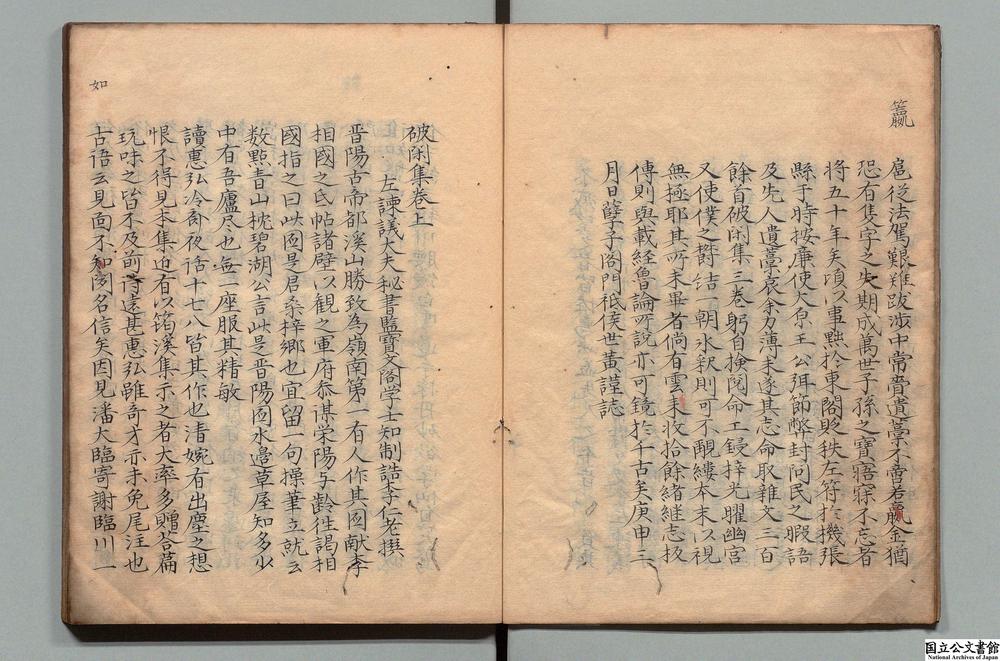 籯
扈從法駕艱難跋涉中常賫遺藁不啻若籯金猶
恐有隻字之失期成萬世子孫之寶寤寐不忘者
將五十年矣頃以事黜於東閣貶秩左符於機張
縣于時按廉使大原王公弭節弊封問民之暇語
及先人遺藁哀余力薄未遂其志命取雜文三百
餘首破閑集三卷躬自檢閱命工鋟梓光曜幽宮
又使僕之欝結一朝氷釋則可不覼縷本末以視
無極耶其所未畢者倘有雲來收拾餘緖継志扳
傳則與載経魯論所說亦可鏡於千古矣庚申三
月日孽子閤門祗侯世黃謹誌
如
破閑集卷上
左諫議大夫秘書監寶文閣学士知制誥李仁老撰
晋陽古帝都溪山勝致為嶺南第一有人作其圖献李
相國之氏帖諸壁以觀之軍府叅謀栄陽与齡徃謁相
國指之曰此圖是君桑梓鄉也宜留一句操筆立就云
数點青山枕碧湖公言此是晋陽圖水邉草屋知多少
中有吾廬尽也無一座服其精敏
讀惠弘冷斎夜話十七八皆其作也清婉有出塵之想
恨不得見本集近有以筠溪集示之者大率多贈荅篇
玩味之皆不及前詩遠甚惠弘雖奇才亦未免瓦注也
古語云見面不如聞名信矣因見潘大臨寄謝臨川一
国立公文書館
National Archives of Japan